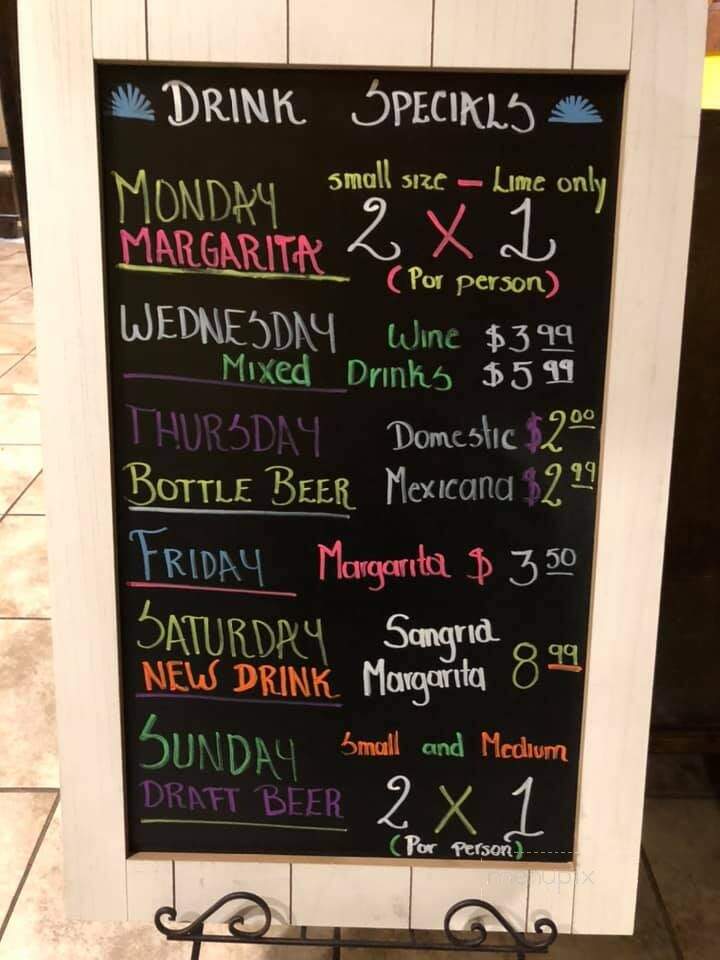 DRINK SPECIALS
MONDAY small size - Lime only
MARGARITA 2 X 1
(Por person)
WEDNESDAY Wine $3 99
Mixed Drinks $5 99
THURSDAY Domestic $2 00
BOTTLE BEER Mexicana $2 99
FRIDAY Margarita $ 3 50
SATURDAY Sangria
NEW DRINK Margarita 8 99
SUNDAY Small and Medium
DRAFT BEER 2 X 1
(Por person)
menupix